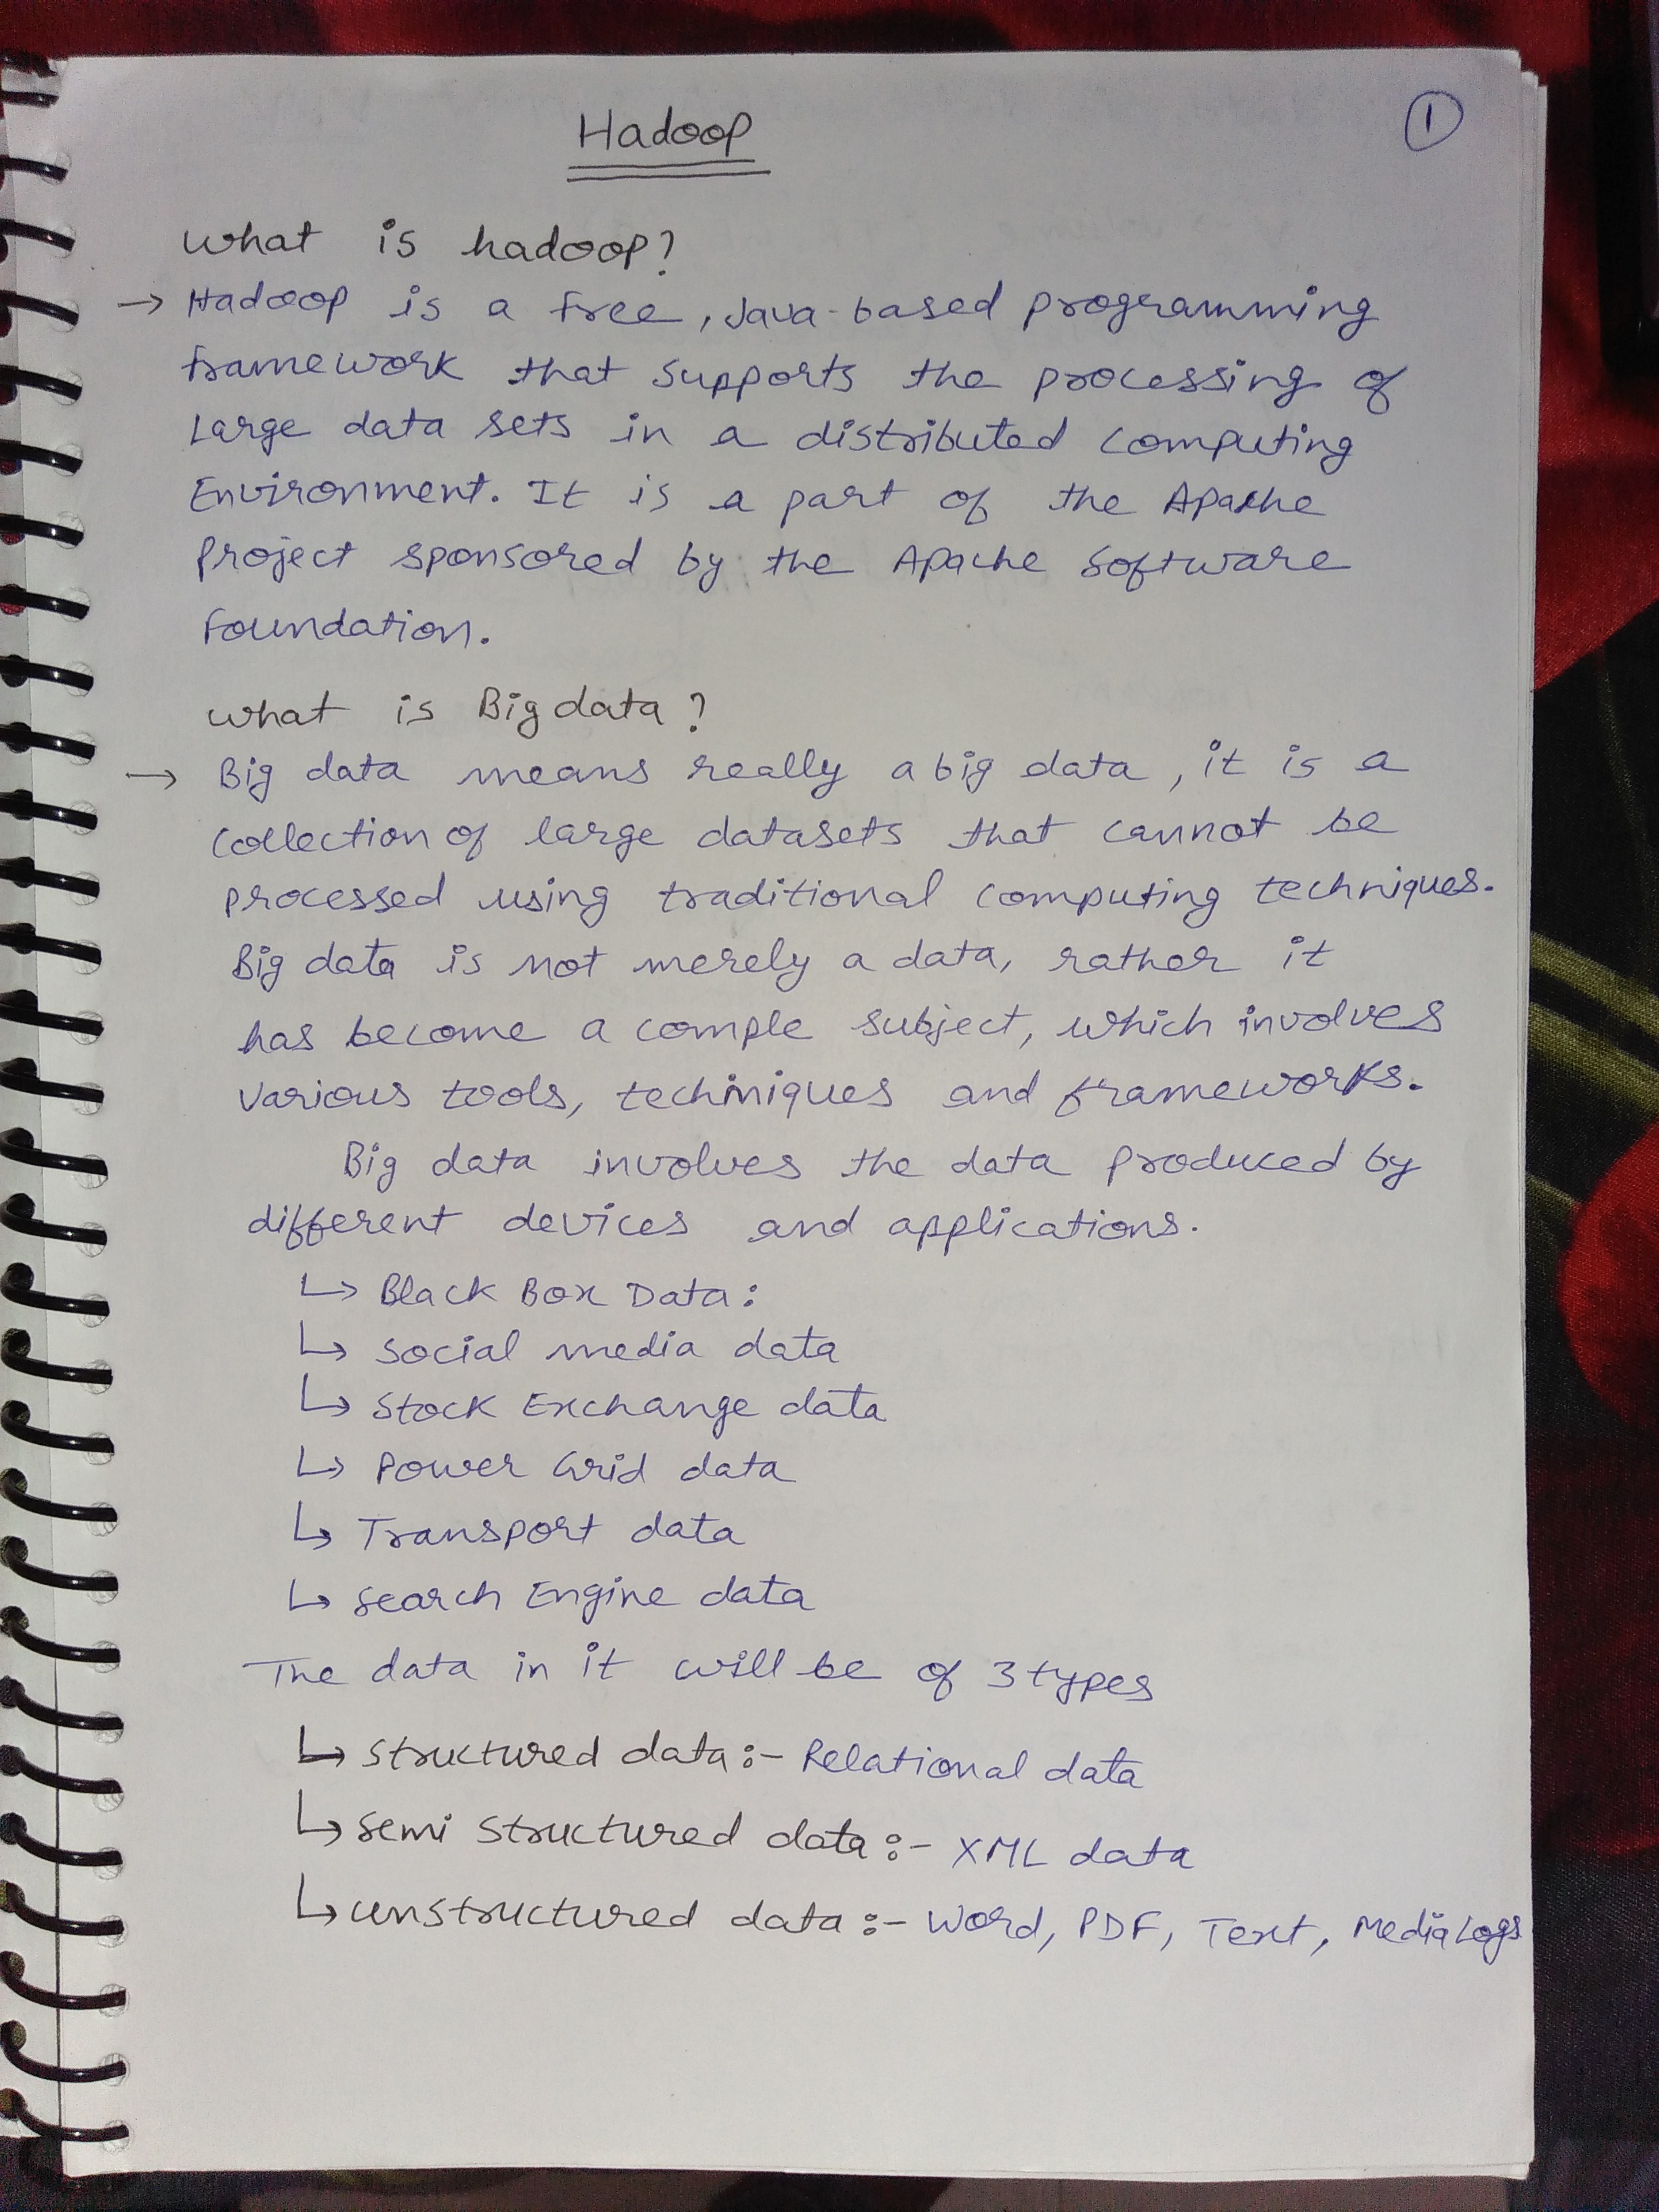 Hadoop
1
What is hadoop?
→ Hadoop is a free, Java-based programming
framework that supports the processing of
Large data sets in a distributed computing
Environment. It is a part of the Apache
Project sponsored by the Apache Software
Foundation.
What is Big data?
→ Big data means really a big data, it is a
collection of large datasets that cannot be
processed using traditional computing techniques.
Big data is not merely a data, rather it
has become a comple subject, which involves
various tools, techniques and frameworks.
Big data involves the data produced by
different devices and applications.
↳ Black Box Data:
↳ Social media data
↳ Stock Exchange data
↳ Power Grid data
↳ Transport data
↳ Search Engine data
The data in it will be of 3 types
↳ Structured data:- Relational data
↳ Semi Structured data:- XML data
↳ unstructured data:- Word, PDF, Text, Media Logs